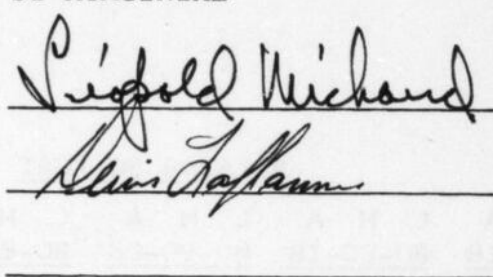 Léopold Michaud
Denis Laflamme